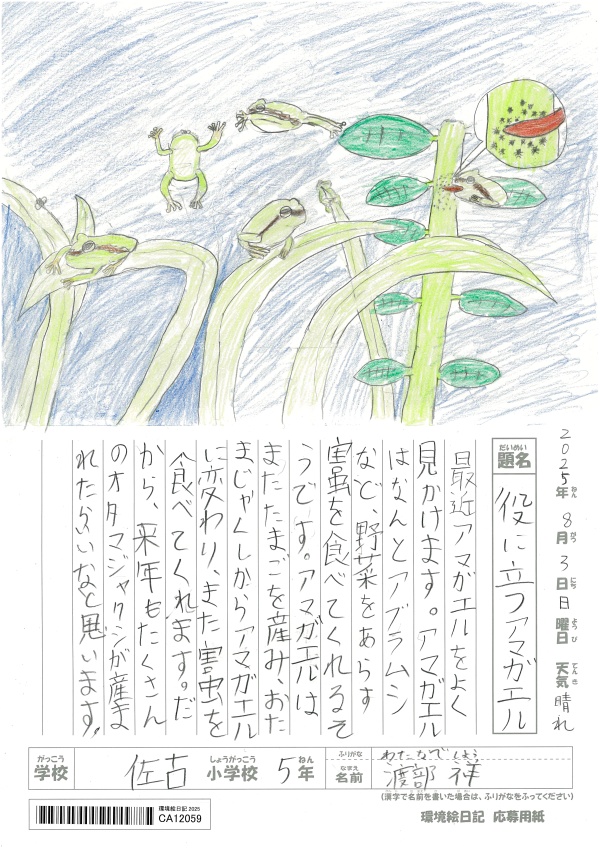 2025年ねん 8月がつ 3日にち 日曜日ようび 天気てんき 晴れ
だいめい
題名 役に立つアマガエル
最近アマガエルをよく
見かけます。アマガエル
はなんとアブラムシ
など、野菜をあらす
害虫を食べてくれるそ
うです。アマガエルは
またたまごを産み、おた
まじゃくしからアマガエル
に変わり、また害虫を
食べてくれます。だ
から、来年もたくさん
のオタマジャクシが産ま
れたらいいなと思います。
がっこう 学校 佐古 しょうがっこう 小学校 5 ねん 年
ふりがな わたなべ しょう
なまえ 名前 渡部 祥
(漢字で名前を書いた場合は、ふりがなをふってください)
環境絵日記 2025
CA12059
環境絵日記 応募用紙